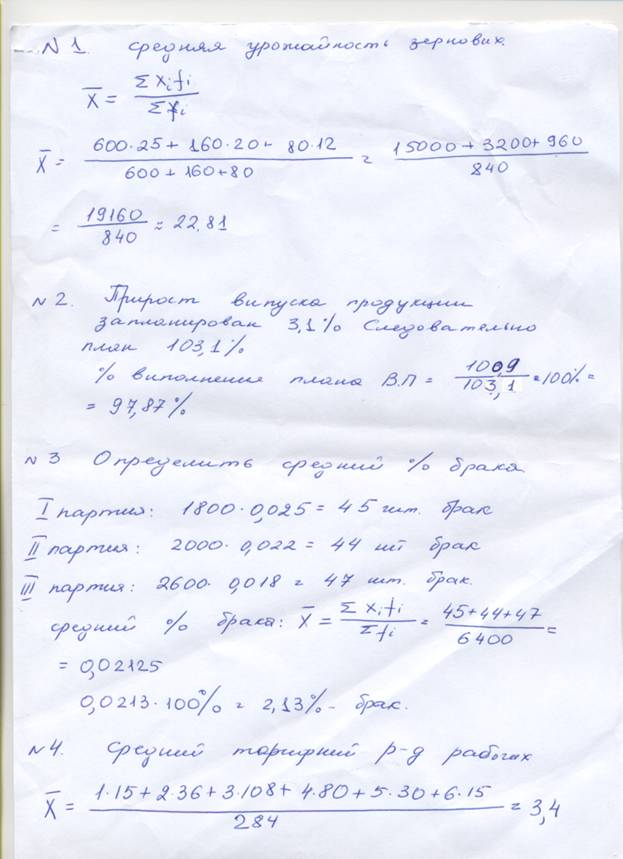 N 1 средняя урожайность зернових.
X̄ = Σ xᵢfᵢ / Σ fᵢ
X̄ = 600·25 + 160·20 + 80·12 / 600 + 160 + 80 = 15000 + 3200 + 960 / 840
= 19160 / 840 ≈ 22,81
N 2. Прирост випуска продукции
запланирован 3,1% Следовательно
план 103,1%
% виполнение плана В.П = 100,9 / 103,1 · 100% =
= 97,87%
N 3 Определить средний % брака
I партия: 1800·0,025 = 45 шт. брак
II партия: 2000·0,022 = 44 шт брак
III партия: 2600·0,018 = 47 шт. брак.
средний % брака: X̄ = Σ xᵢfᵢ / Σ fᵢ = 45+44+47 / 6400 =
= 0,02125
0,0213·100% = 2,13% - брак.
N 4. Средний тарифний р-д рабочих
X̄ = 1·15 + 2·36 + 3·108 + 4·80 + 5·30 + 6·15 / 284 = 3,4